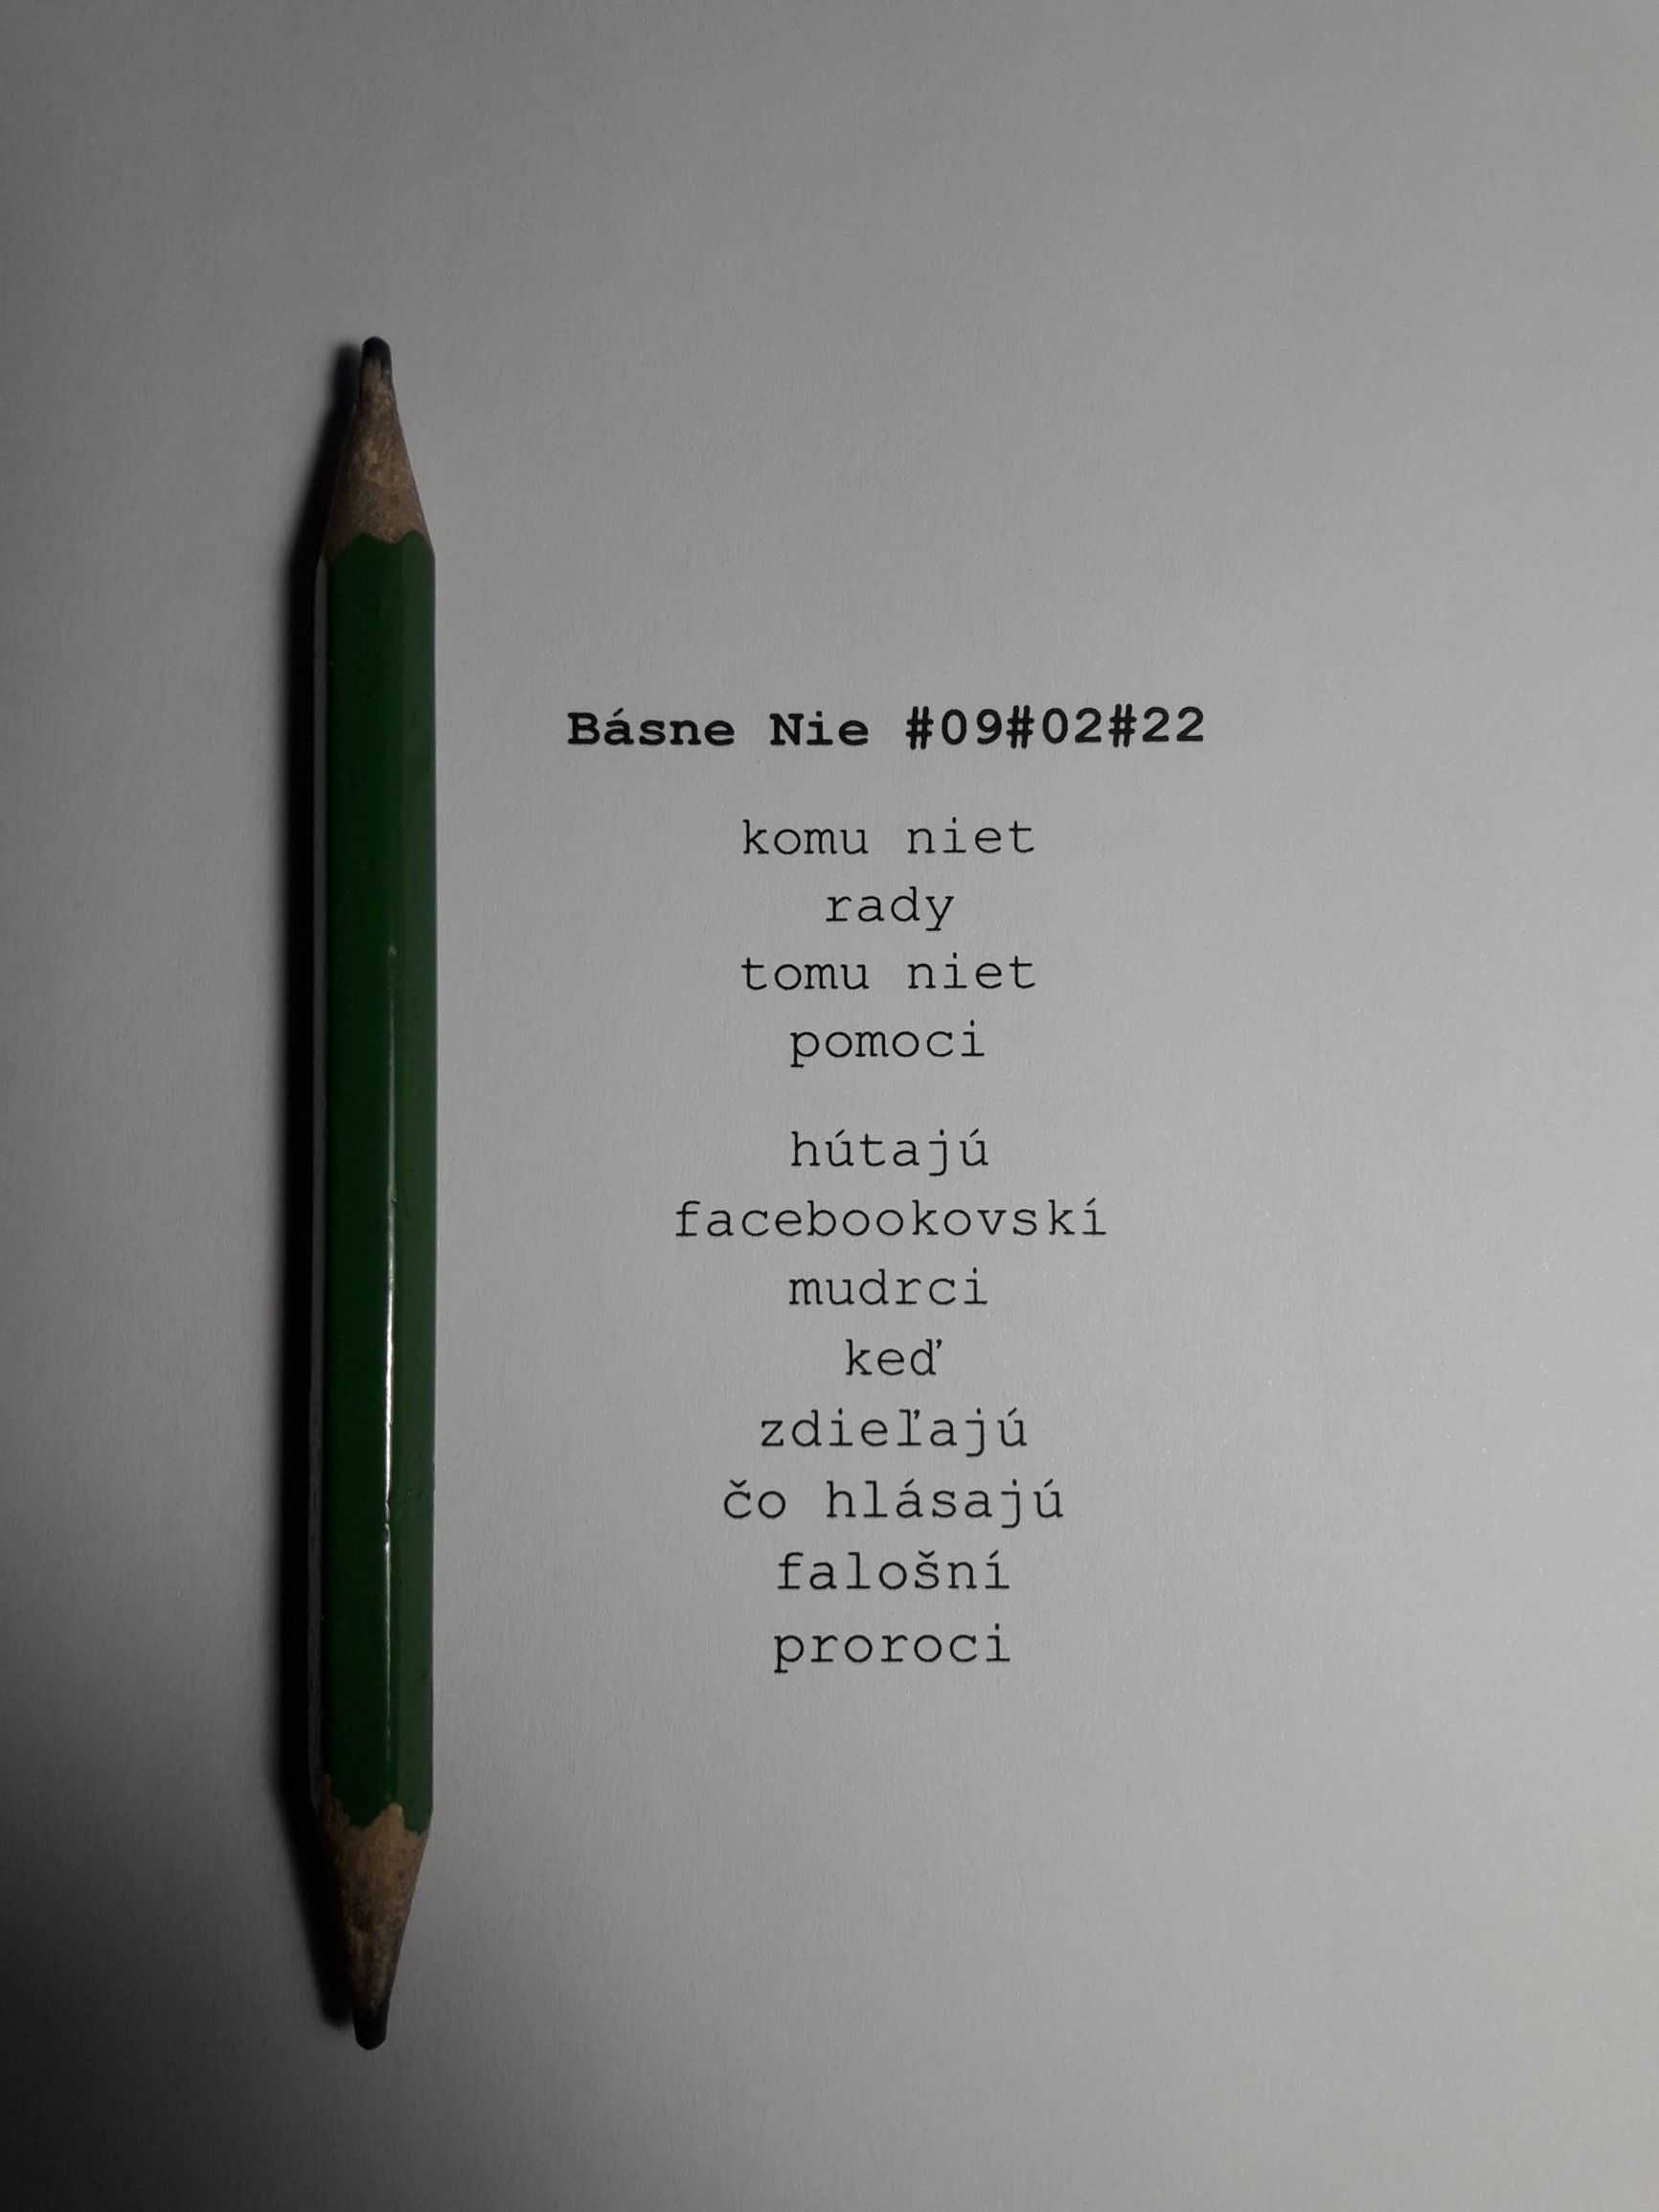 Básne Nie #09#02#22
komu niet
rady
tomu niet
pomoci
hútajú
facebookovskí
mudrci
keď
zdieľajú
čo hlásajú
falošní
proroci